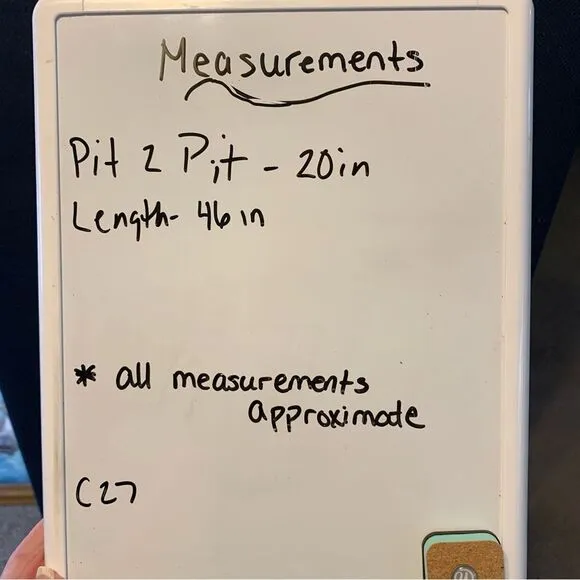 Measurements
Pit 2 Pit - 20in
Length- 46in
* all measurements
approximate
C27